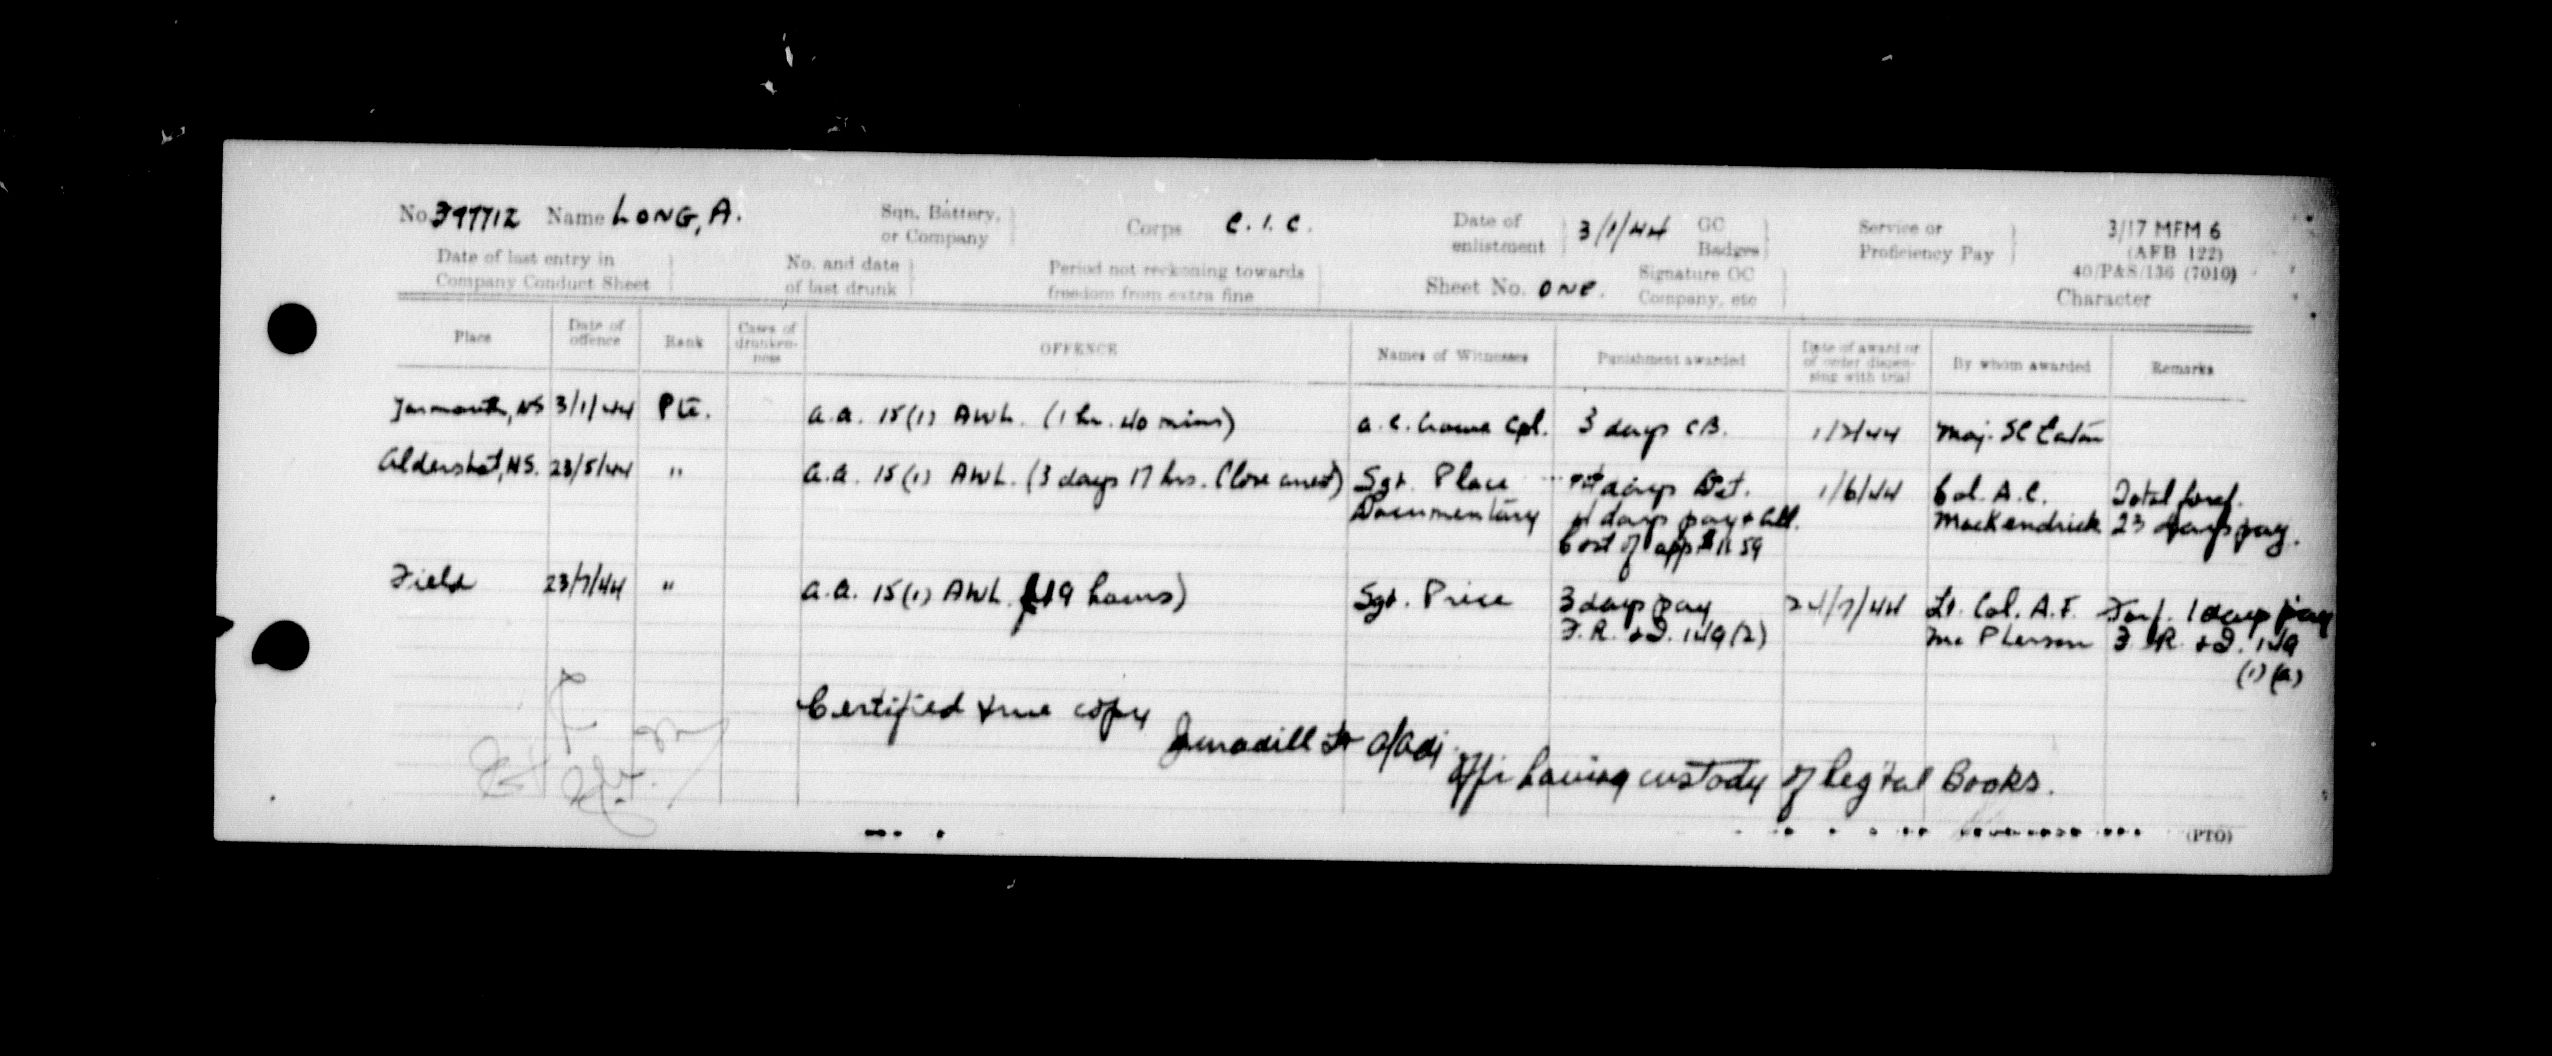 No. 397712 Name LONG, A. Sqn. Battery, or Company Corps C.I.C. Date of enlistment 3/1/44 GC Badges Service or Proficiency Pay 3/17 MFM 6
(AFB 122)
40/P&S/136 (7010)
Date of last entry in Company Conduct Sheet No. and date of last drunk Period not reckoning towards freedom from extra fine Sheet No. ONE. Signature OC Company, etc Character
Place Date of offence Rank Cases of drunken-ness OFFENCE Names of Witnesses Punishment awarded Date of award or of order dispen-sing with trial By whom awarded Remarks
Yarmouth, NS 3/1/44 Pte. A.A. 15(1) AWL. (1 hr. 40 mins) A.C. Crowe Cpl. 3 days CB. Maj. SC Eaton
Aldershot, NS. 23/5/44 " A.A. 15(1) AWL. (3 days 17 hrs. Close arrest) Sgt. Place days Det. 1/6/44 Col. A.C. Total forf.
Documentary days pay & All. MacKendrick 23 days pay.
Cost of app
Field 23/7/44 " A.A. 15(1) AWL. (19 hours) Sgt. Price 3 days pay 24/7/44 Lt. Col. A.F. Forf. 1 days pay
F.R. & I. 149(2) McPherson F.R. & I. 149
(1) (a)
Certified true copy
Lt A/Adj
Offi having custody of Regtal Books.
(PTO)